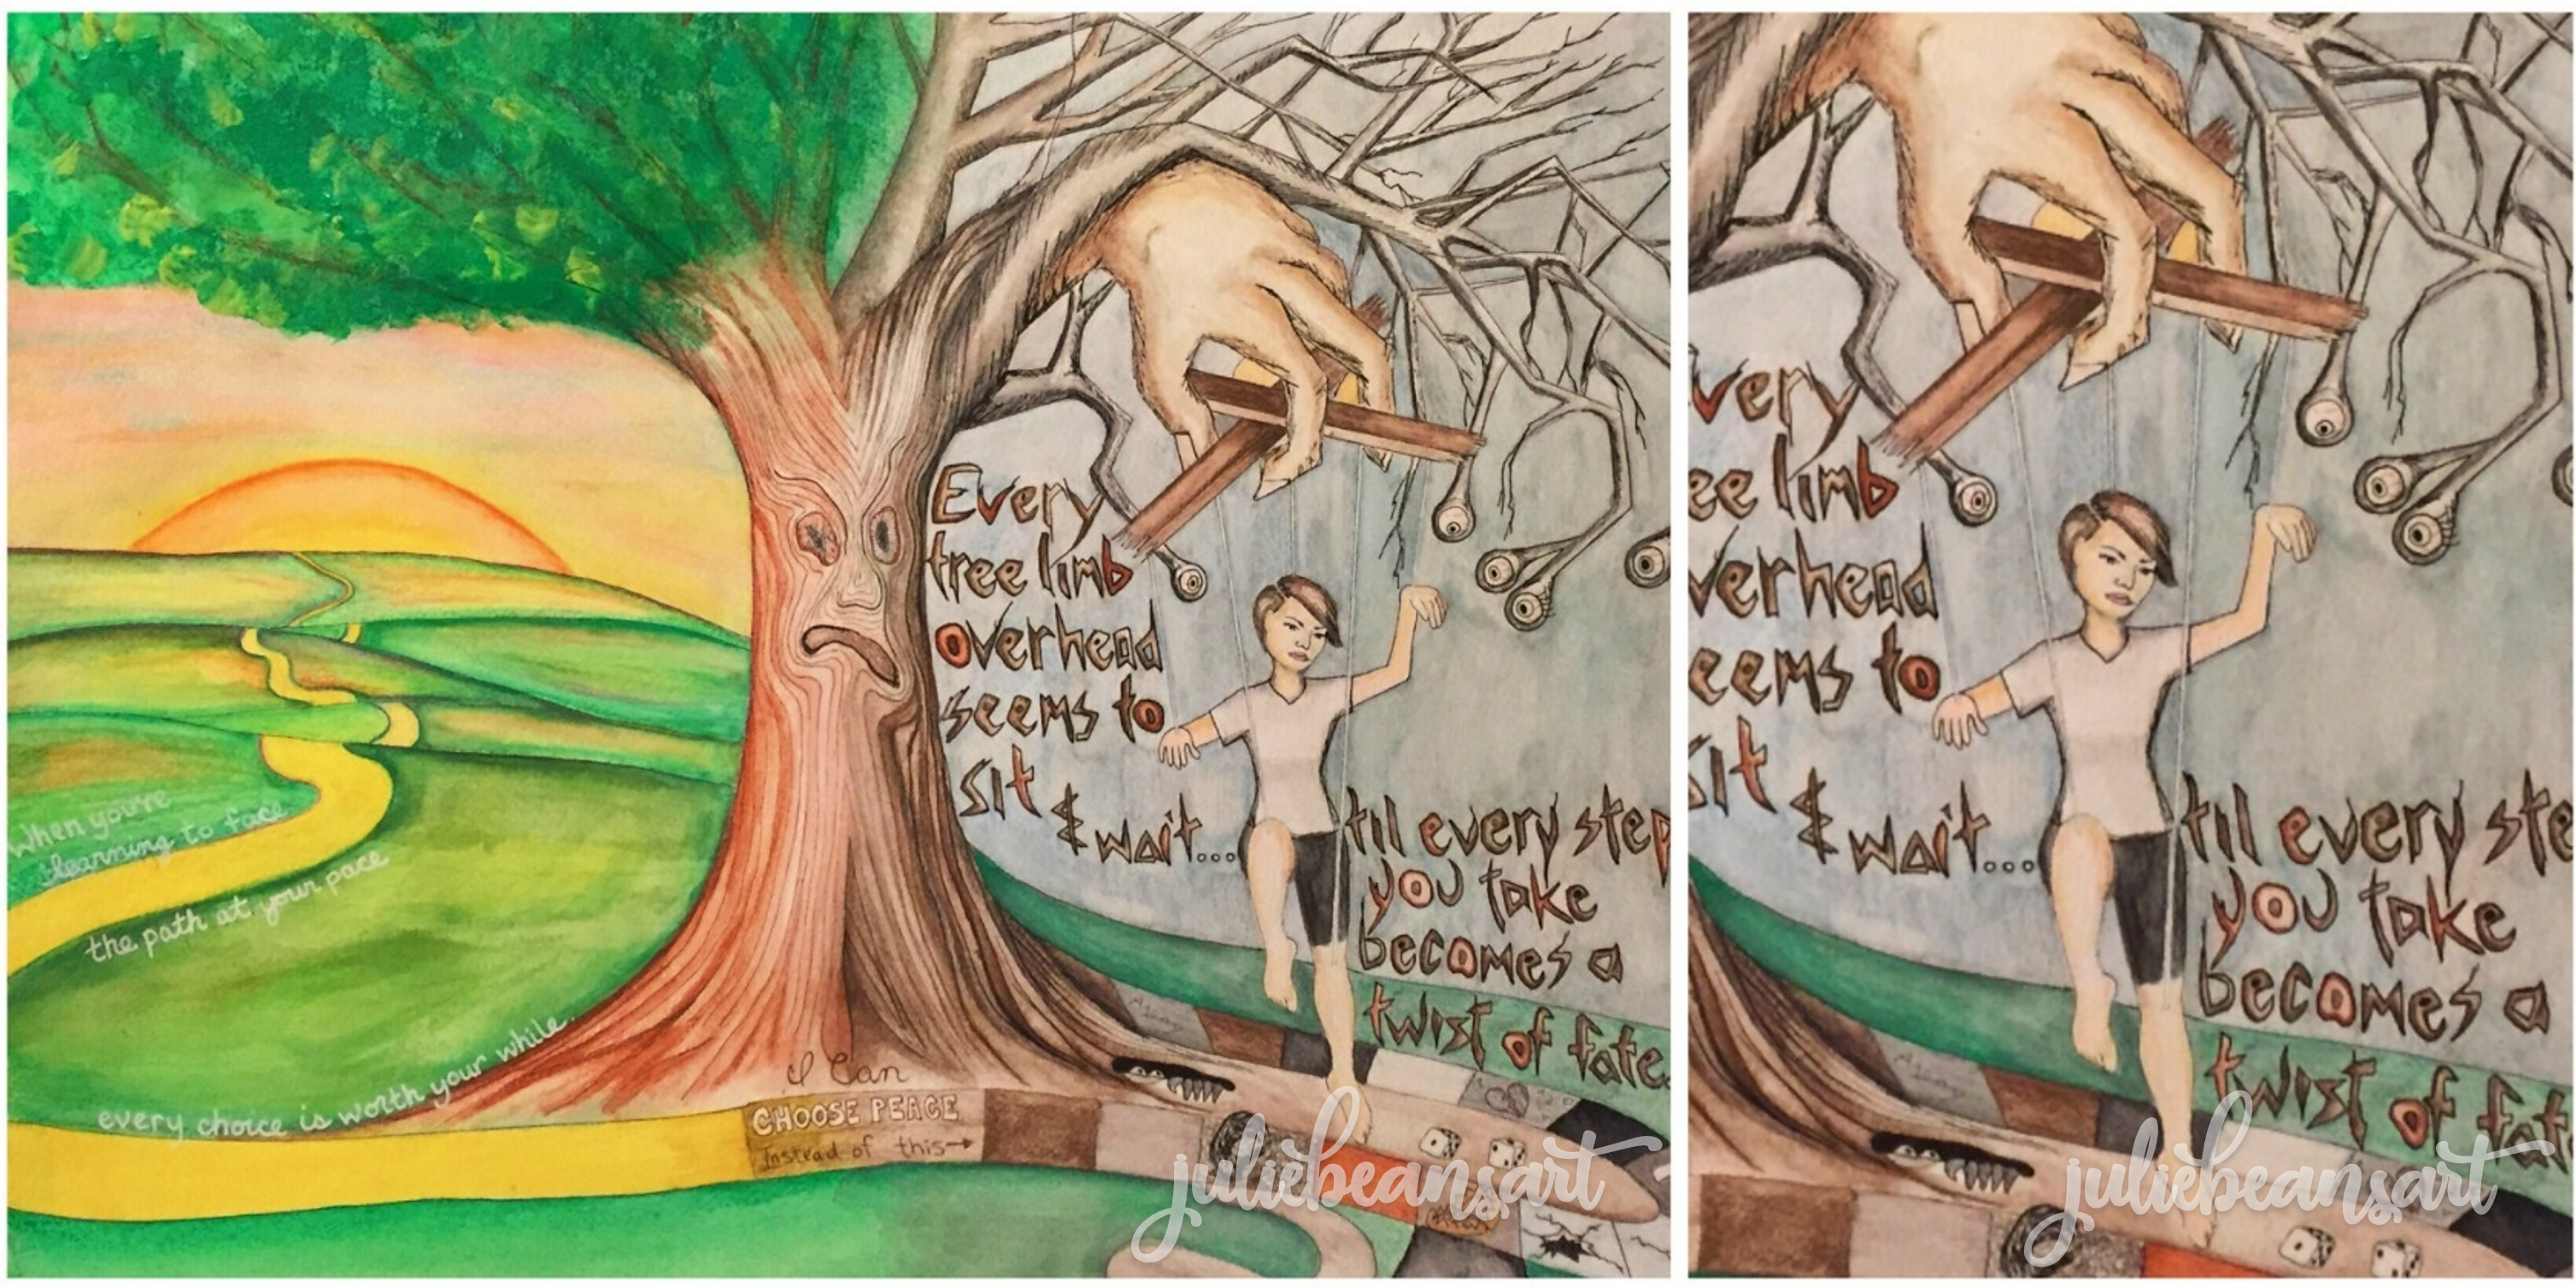 When you're
learning to face
the path at your pace
every choice is worth your while.
Every
tree limb
overhead
seems to
sit
& wait...
til every step
you take
becomes a
twist of fate.
I Can
CHOOSE PEACE
instead of this→
juliebeansart
very
ee limb
verhead
eems to
sit
& wait...
til every ste
you take
becomes a
twist of fat
juliebeansart